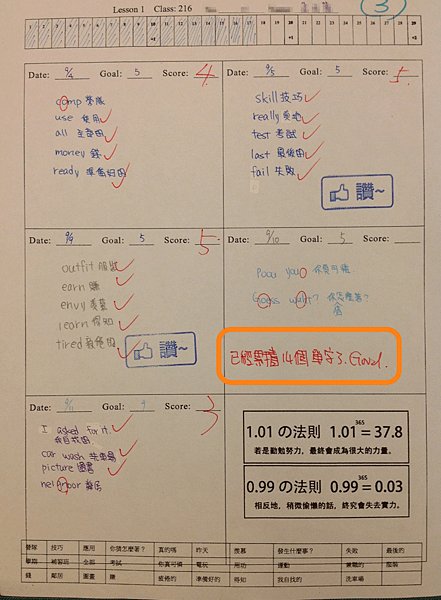 Lesson 1 Class: 216
3
1 2 3 4 5 6 7 8 9 10 11 12 13 14 15 16 17 18 19 20 21 22 23 24 25 26 27 28 29 30
Date: 9/4 Goal: 5 Score: 4
comp 營隊
use 使用
all 全部的
money 錢
ready 準備好的
Date: 9/5 Goal: 5 Score: 5
skill 技巧
really 真的
test 考試
last 最後的
fail 失敗
讚~
Date: 9/9 Goal: 5 Score: 5
outfit 服裝
earn 賺
envy 羨慕
learn 得知
tired 疲倦的
讚~
Date: 9/10 Goal: 5 Score:
Pooo you 你真可憐
Goess wuht? 你怎麼著?
已經累積14個單字了. Good.
Date: 9/11 Goal: 4 Score: 3
I asked for it.
我自找的
car wash 洗車場
picture 圖畫
鄰居
1.01 の法則 1.01 365 = 37.8
若是勤勉努力，最終會成為很大的力量。
0.99 の法則 0.99 365 = 0.03
相反地，稍微偷懶的話，終究會失去實力。
營隊 技巧 應用 你猜怎麼著？ 真的嗎 昨天 羨慕 發生什麼事？ 失敗 最後的
學期 補習班 全部 考試 你真可憐 電玩 用功 運動 兼職的 服裝
錢 鄰居 圖畫 賺 疲倦的 準備好的 得知 我自找的 洗車場